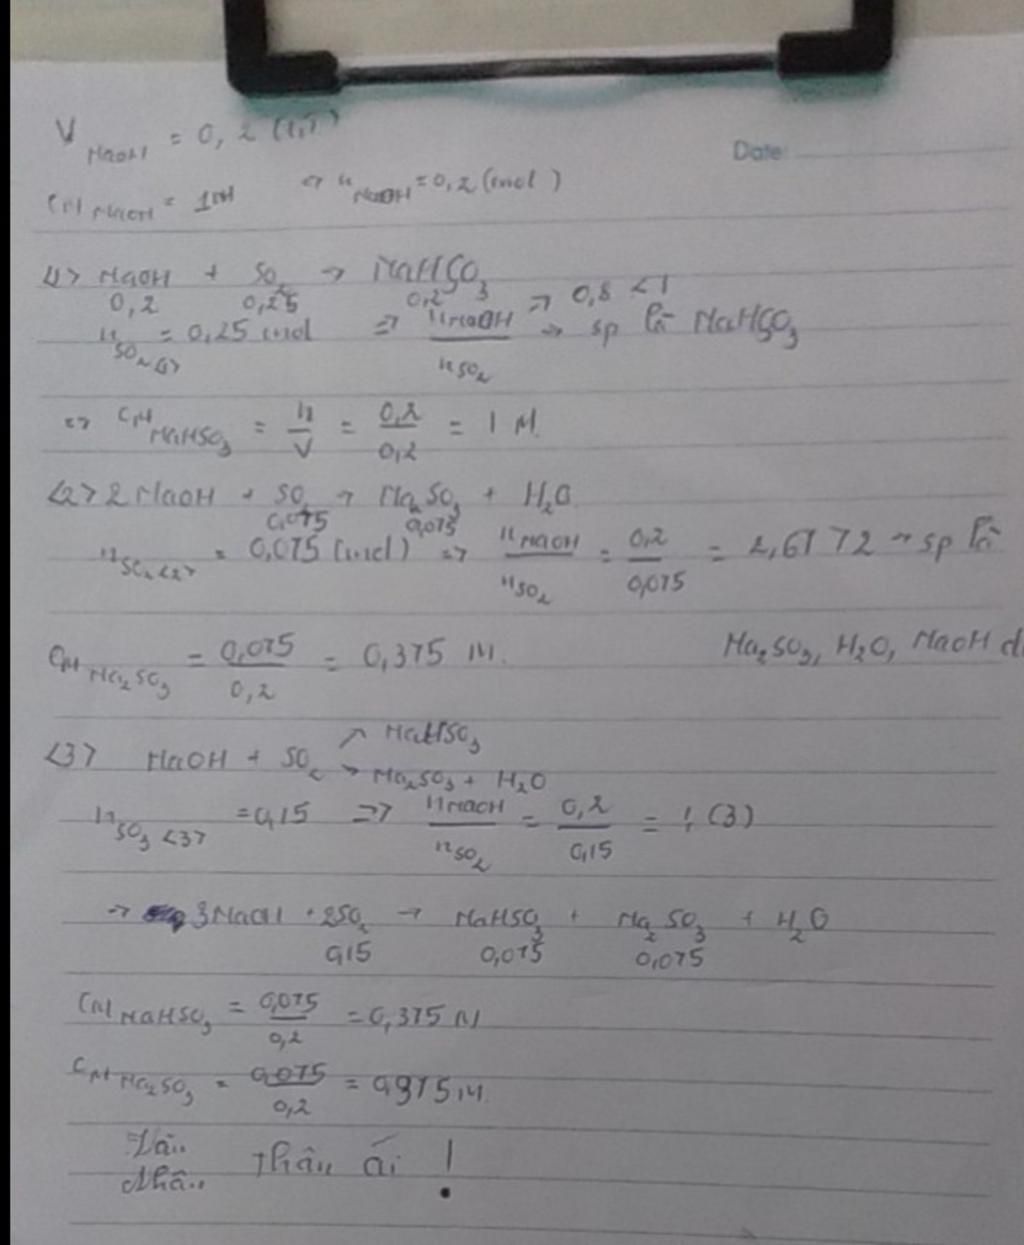 V NaOH = 0,2 (lít)
Date:
CM NaOH = 1M => n NaOH = 0,2 (mol)
<1> NaOH + SO2 → NaHSO3
0,2 0,25 0,2 => 0,8 < 1
n SO2 <1> = 0,25 mol => nNaOH / nSO2 → sp là NaHSO3
=> CM NaHSO3 = n/V = 0,2/0,2 = 1 M.
<2> 2 NaOH + SO2 → Na2SO3 + H2O
0,075 0,075
n SO2 <2> = 0,075 (mol) => nNaOH / nSO2 = 0,2/0,075 = 2,67 > 2 → sp là
Na2SO3, H2O, NaOH d
CM Na2SO3 = 0,075/0,2 = 0,375 M.
<3> NaOH + SO2 ↗ NaHSO3
↘ Na2SO3 + H2O
n SO3 <3> = 0,15 => nNaOH / nSO2 = 0,2/0,15 = 1,(3)
→ 3NaOH + 2SO2 → NaHSO3 + Na2SO3 + H2O
0,15 0,075 0,075
CM NaHSO3 = 0,075/0,2 = 0,375 M
CM Na2SO3 = 0,075/0,2 = 0,375 M.
thân ái !